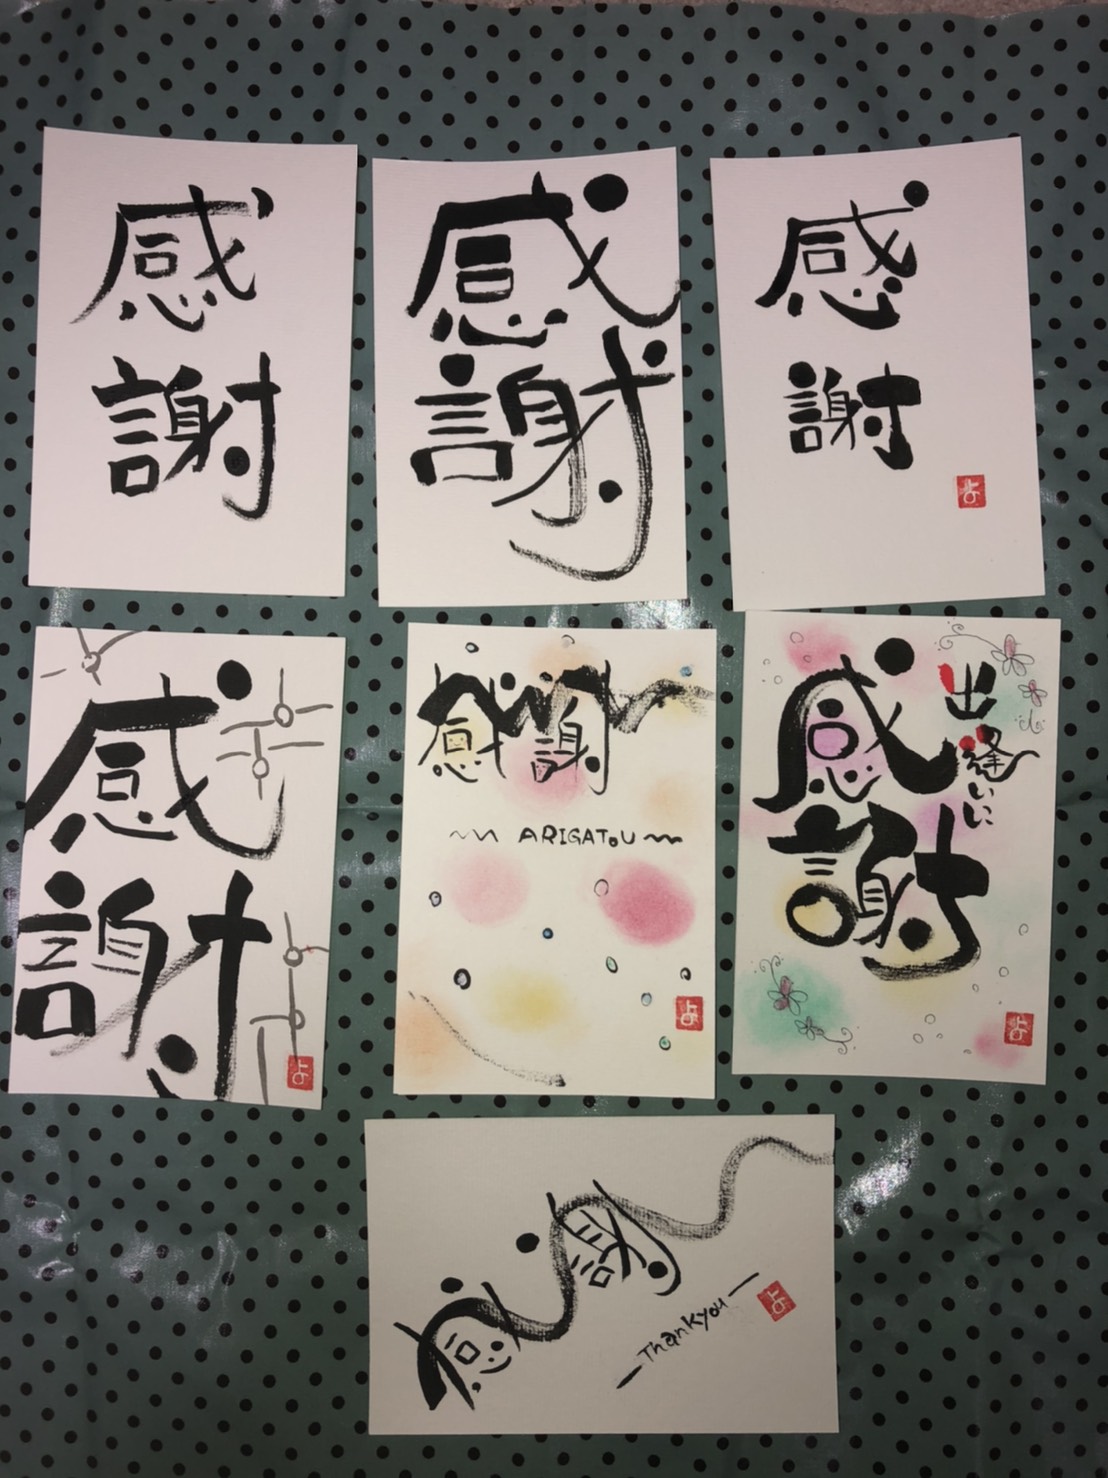 感
謝
感
謝
感
謝
よ
感
謝
よ
感謝
~~ ARIGAToU ~~
よ
感
謝
出
縫いに
よ
感謝
— Thankyou —
よ